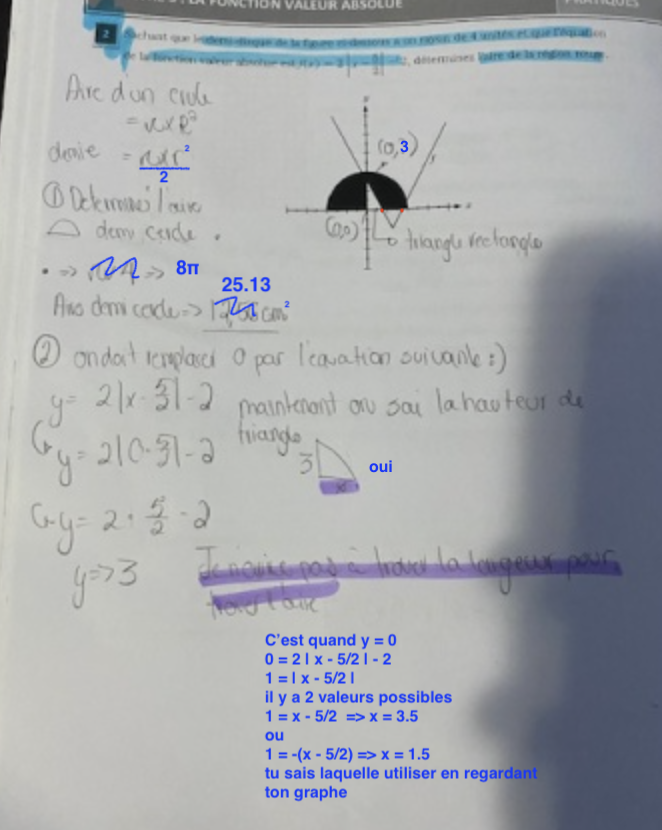 LA FONCTION VALEUR ABSOLUE
PRATIQUES
2 Sachant que le demi-disque de la figure ci-dessous a un rayon de 4 unités et que l'équation
de la fonction valeur absolue est f(x) = 2 | x - 5/2 | - 2, déterminez l'aire de la région rouge.
Aire d'un cercle
= π x R²
demie = π x r²
2
(0,3)
① Determiné l'aire
demi cercle.
(0,0)
triangle rectangle
• => => 8π
25.13
Aire demi cercle => cm²
② on doit remplacer 0 par l'équation suivante :)
y = 2|x - 5/2| - 2 maintenant on sai la hauteur de
triangle
y = 2|0 - 5/2| - 2
3
x
oui
y = 2 • 5/2 - 2
y => 3
Je n'arrive pas à trouver la longeur pour
trouver l'aire
C'est quand y = 0
0 = 2 l x - 5/2 l - 2
1 = l x - 5/2 l
il y a 2 valeurs possibles
1 = x - 5/2 => x = 3.5
ou
1 = -(x - 5/2) => x = 1.5
tu sais laquelle utiliser en regardant
ton graphe